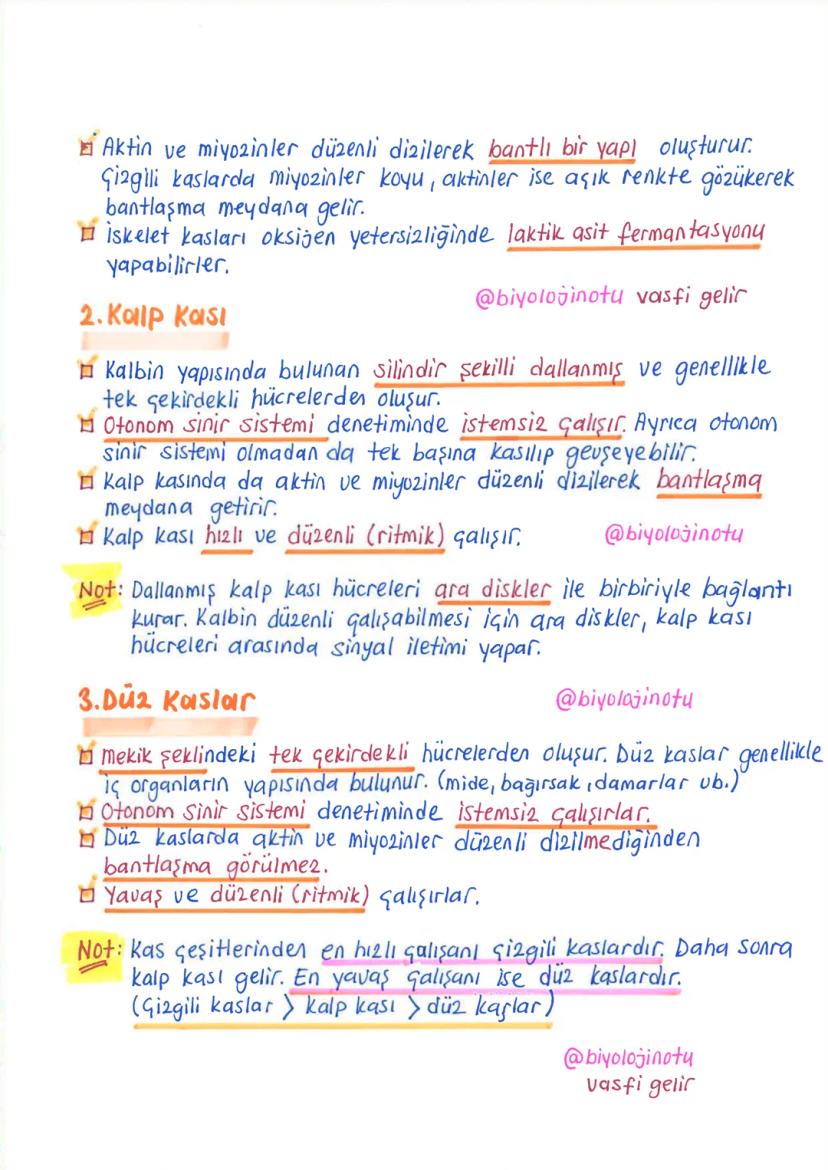 Aktin ve miyozinler düzenli dizilerek bantlı bir yapı oluşturur.
Çizgili kaslarda miyozinler koyu, aktinler ise açık renkte gözükerek
bantlaşma meydana gelir.
İskelet kasları oksijen yetersizliğinde laktik asit fermantasyonu
yapabilirler.
@biyolojinotu vasfi gelir
2. Kalp Kası
Kalbin yapısında bulunan silindir şekilli dallanmış ve genellikle
tek çekirdekli hücrelerden oluşur.
Otonom sinir sistemi denetiminde istemsiz çalışır. Ayrıca otonom
sinir sistemi olmadan da tek başına kasılıp gevşeyebilir.
Kalp kasında da aktin ve miyozinler düzenli dizilerek bantlaşma
meydana getirir.
Kalp kası hızlı ve düzenli (ritmik) çalışır.
@biyolojinotu
Not: Dallanmış kalp kası hücreleri ara diskler ile birbiriyle bağlantı
kurar. Kalbin düzenli çalışabilmesi için ara diskler, kalp kası
hücreleri arasında sinyal iletimi yapar.
3. Düz Kaslar
@biyolojinotu
Mekik şeklindeki tek çekirdekli hücrelerden oluşur. Düz kaslar genellikle
iç organların yapısında bulunur. (mide, bağırsak, damarlar vb.)
Otonom sinir sistemi denetiminde istemsiz çalışırlar.
Düz kaslarda aktin ve miyozinler düzenli dizilmediğinden
bantlaşma görülmez.
Yavaş ve düzenli (ritmik) çalışırlar.
Not: Kas çeşitlerinden en hızlı çalışanı çizgili kaslardır. Daha sonra
kalp kası gelir. En yavaş çalışanı ise düz kaslardır.
(Çizgili kaslar > kalp kası > düz kaşlar)
@biyolojinotu
vasfi gelir